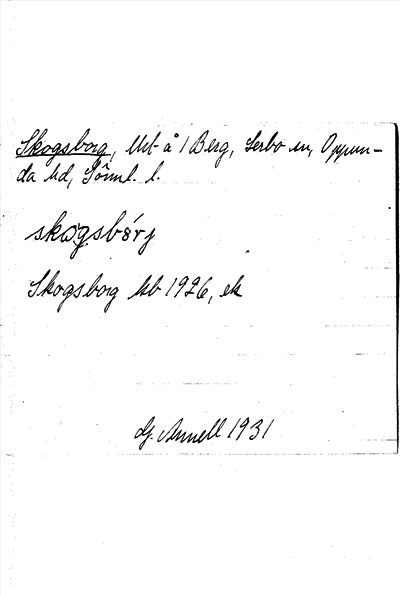 Skogsborg, lht å 1 Berg, Lerbo sn, Oppun-
da hd, Södml. l.
skogsbórj
Skogsborg kb 1926, ek
G. Annell 1931